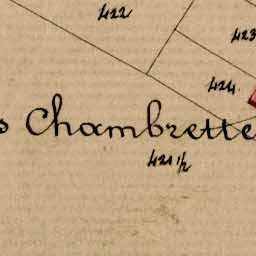 422
423
424.
s Chambrette
421 1/2